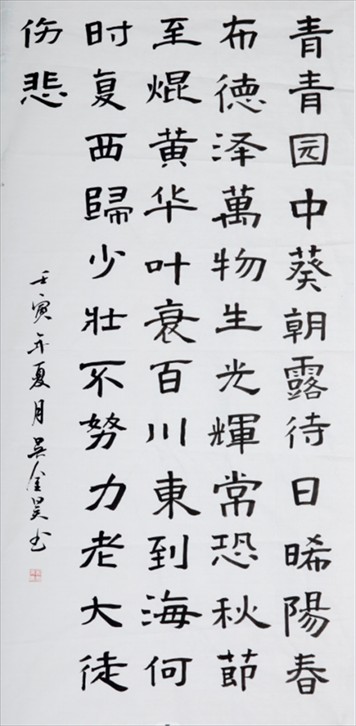 青青园中葵朝露待日晞陽春
布德泽萬物生光輝常恐秋節
至焜黄华叶衰百川東到海何
时复西歸少壮不努力老大徒
伤悲
壬寅年夏月吴金昊书